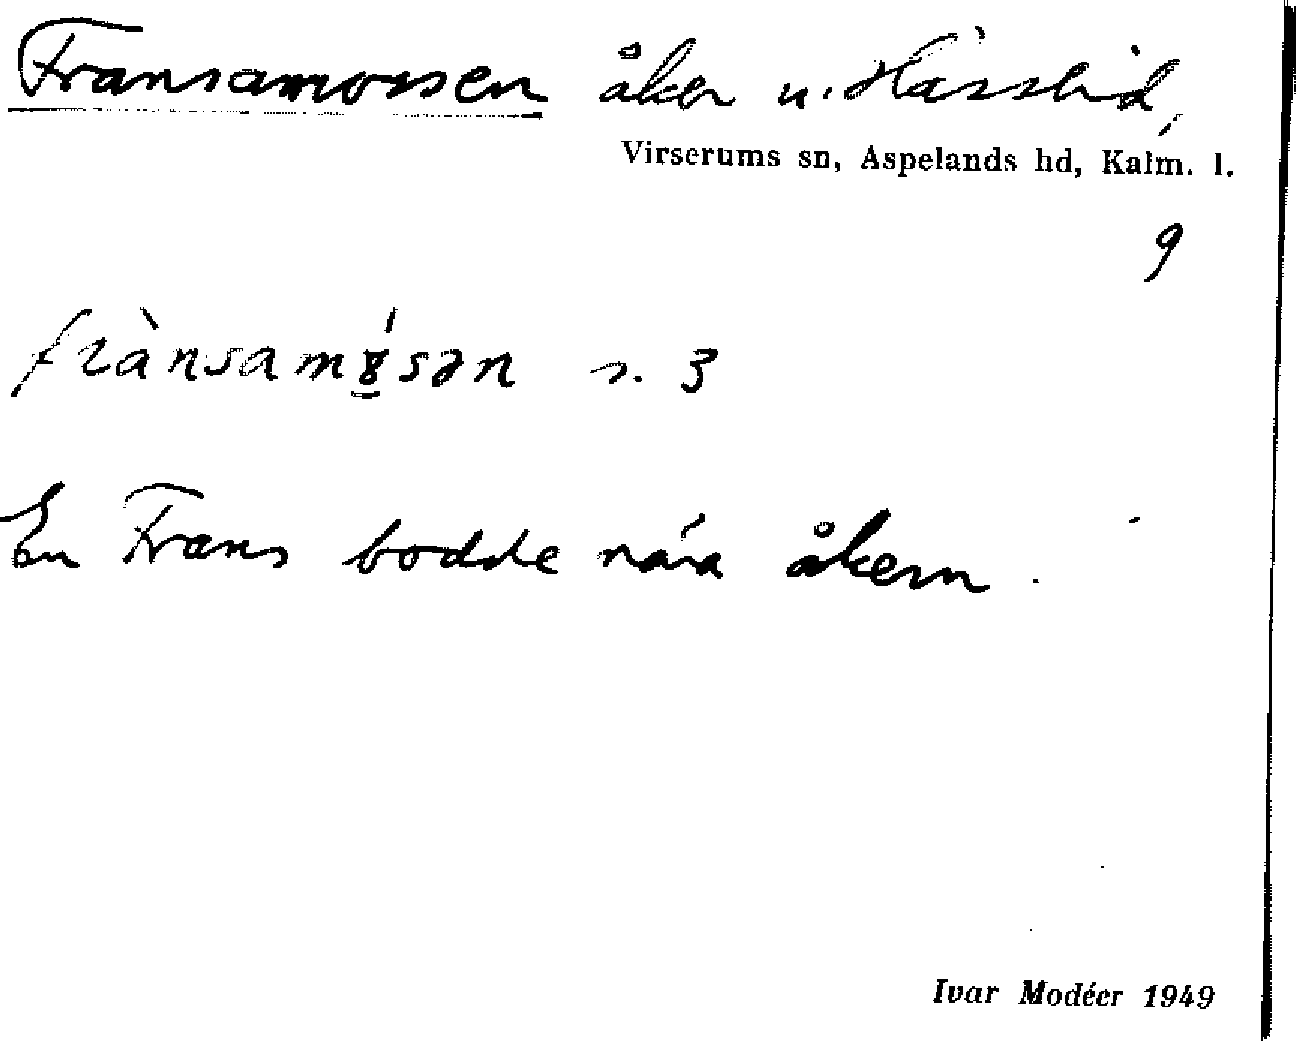 Fransamossen åker u. Hässlid,
Virserums sn, Aspelands hd, Kalm. l.
9
frànsamɤ́sən s. 3
En Frans bodde nära åkern.
Ivar Modéer 1949